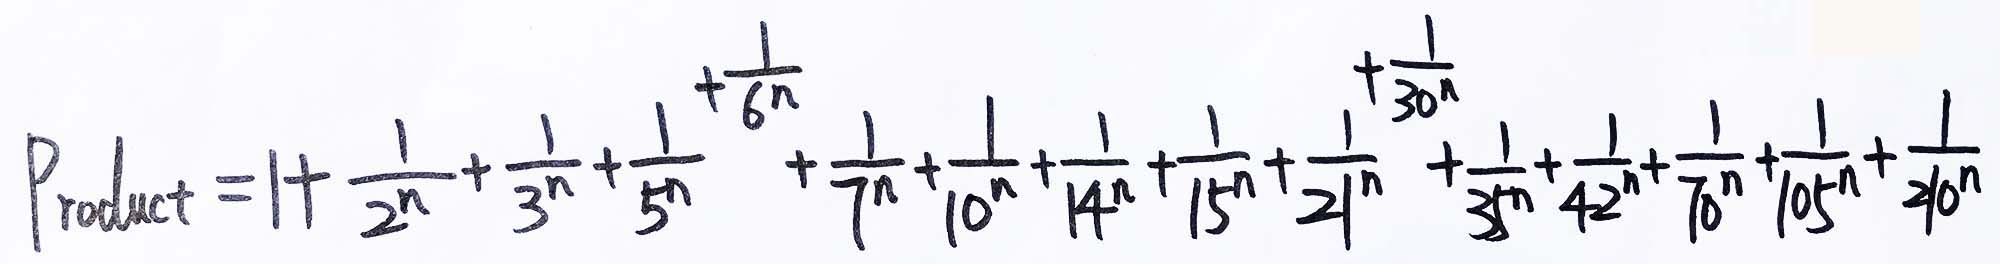 Product = 1 + 1/2ⁿ + 1/3ⁿ + 1/5ⁿ + 1/6ⁿ + 1/7ⁿ + 1/10ⁿ + 1/14ⁿ + 1/15ⁿ + 1/21ⁿ + 1/30ⁿ + 1/35ⁿ + 1/42ⁿ + 1/70ⁿ + 1/105ⁿ + 1/210ⁿ